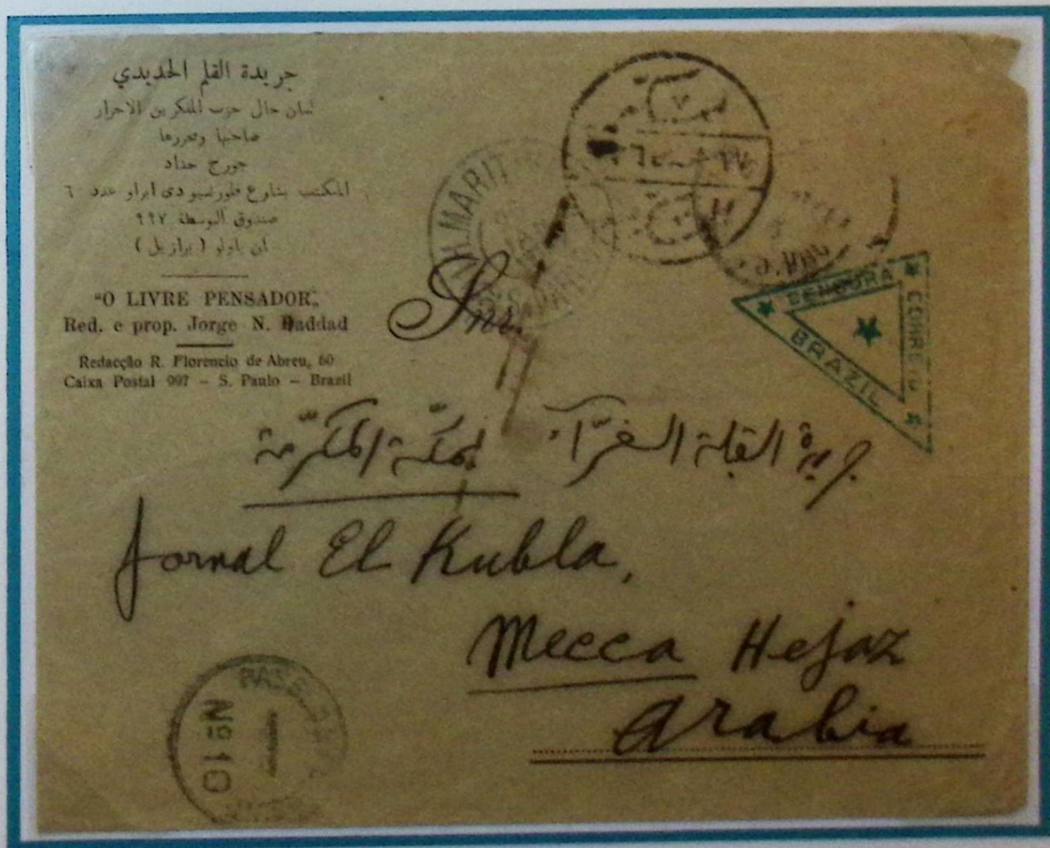 جريدة القلم الحديدي
لسان حال حزب المفكرين الاحرار
صاحبها ومحررها
جورج حداد
المكتب بشارع فلورنسيو دى ابراو عدد ٦٠
صندوق البوسطة ٩٩٧
سان باولو ( برازيل )
"O LIVRE PENSADOR"
Red. e prop. Jorge N. Haddad
Redacção R. Florencio de Abreu, 60
Caixa Postal 997 – S. Paulo – Brazil
Snr.
MARIT
CENSURA
CORREIO
BRAZIL
جريدة القبلة الغرّاء بمكّة المكرّمة
Jornal El Kubla,
Mecca Hejaz
Arabia
PASSED
Nº 10